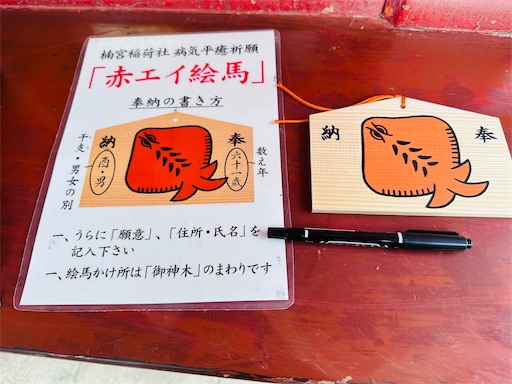 楠宮稲荷社 病気平癒祈願
「赤エイ絵馬」
奉納の書き方
奉
納
数え年
六十一歳
酉・男
干支・男女の別
一、うらに「願意」、「住所・氏名」を
記入下さい
一、絵馬かけ所は「御神木」のまわりです
奉
納